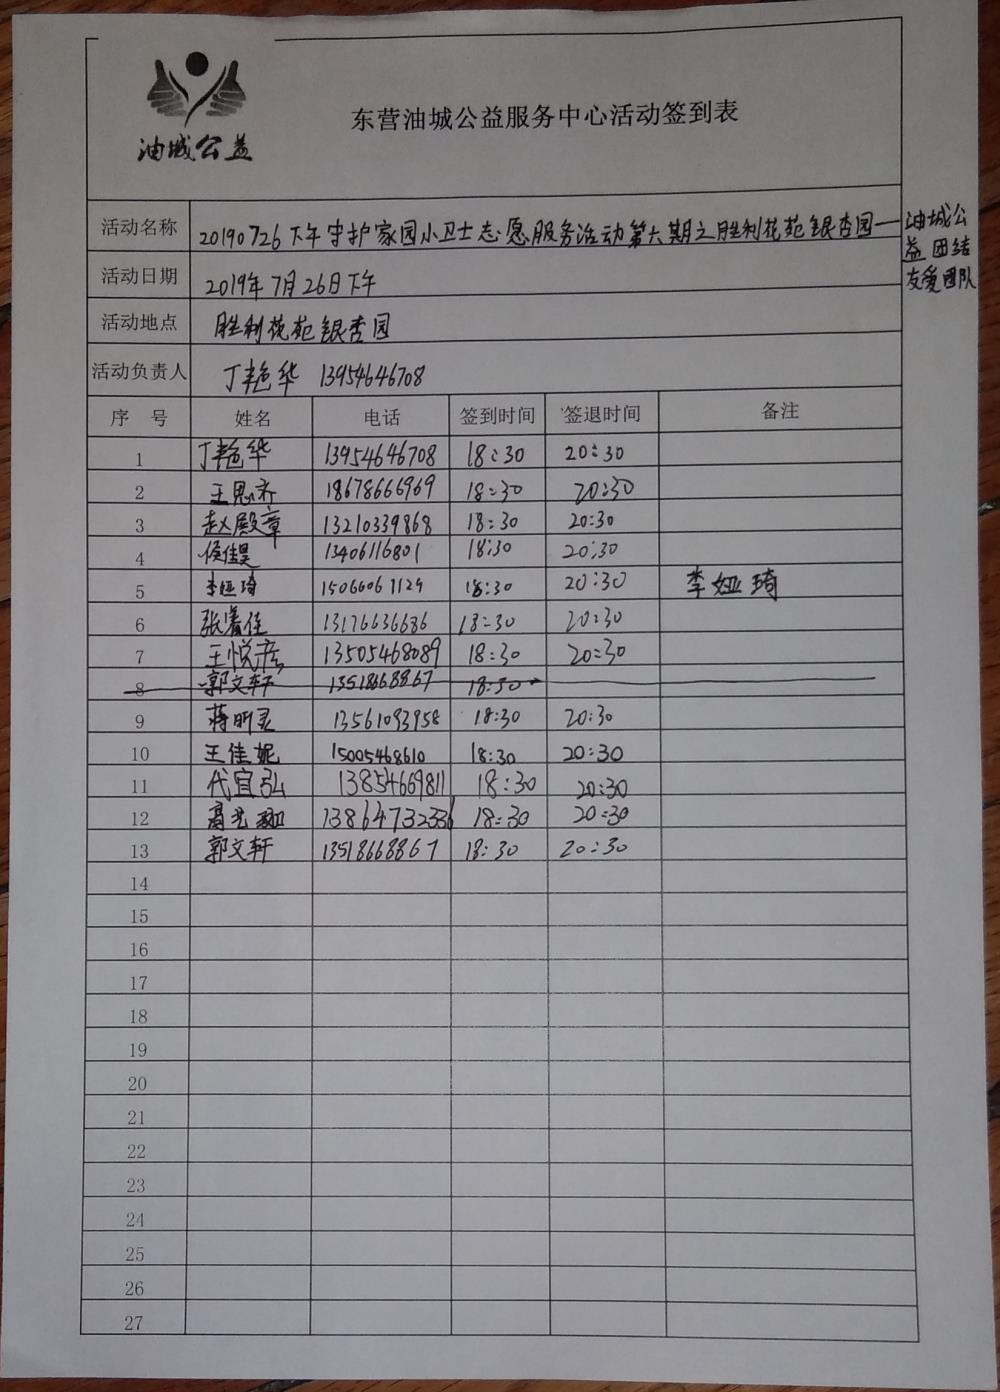 油城公益
东营油城公益服务中心活动签到表
活动名称 20190726下午守护家园小卫士志愿服务活动第六期之胜利花苑银杏园一油城公
益团结
友爱团队
活动日期 2019年7月26日下午
活动地点 胜利花苑银杏园
活动负责人 丁艳华 13954646708
序 号 姓名 电话 签到时间 签退时间 备注
1 丁艳华 13954646708 18:30 20:30
2 王思齐 18678666969 18:30 20:30
3 赵殿章 13210339868 18:30 20:30
4 侯佳昊 13406116801 18:30 20:30
5 李娅琦 15066067129 18:30 20:30 李娅琦
6 张馨佳 13176636686 18:30 20:30
7 王悦彦 13505468089 18:30 20:30
8 郭文轩 13518668867 18:30
9 蒋昕灵 13561093958 18:30 20:30
10 王佳妮 15005468610 18:30 20:30
11 代宜弘 13854669811 18:30 20:30
12 高艺珈 13864732336 18:30 20:30
13 郭文轩 13518668867 18:30 20:30
14
15
16
17
18
19
20
21
22
23
24
25
26
27